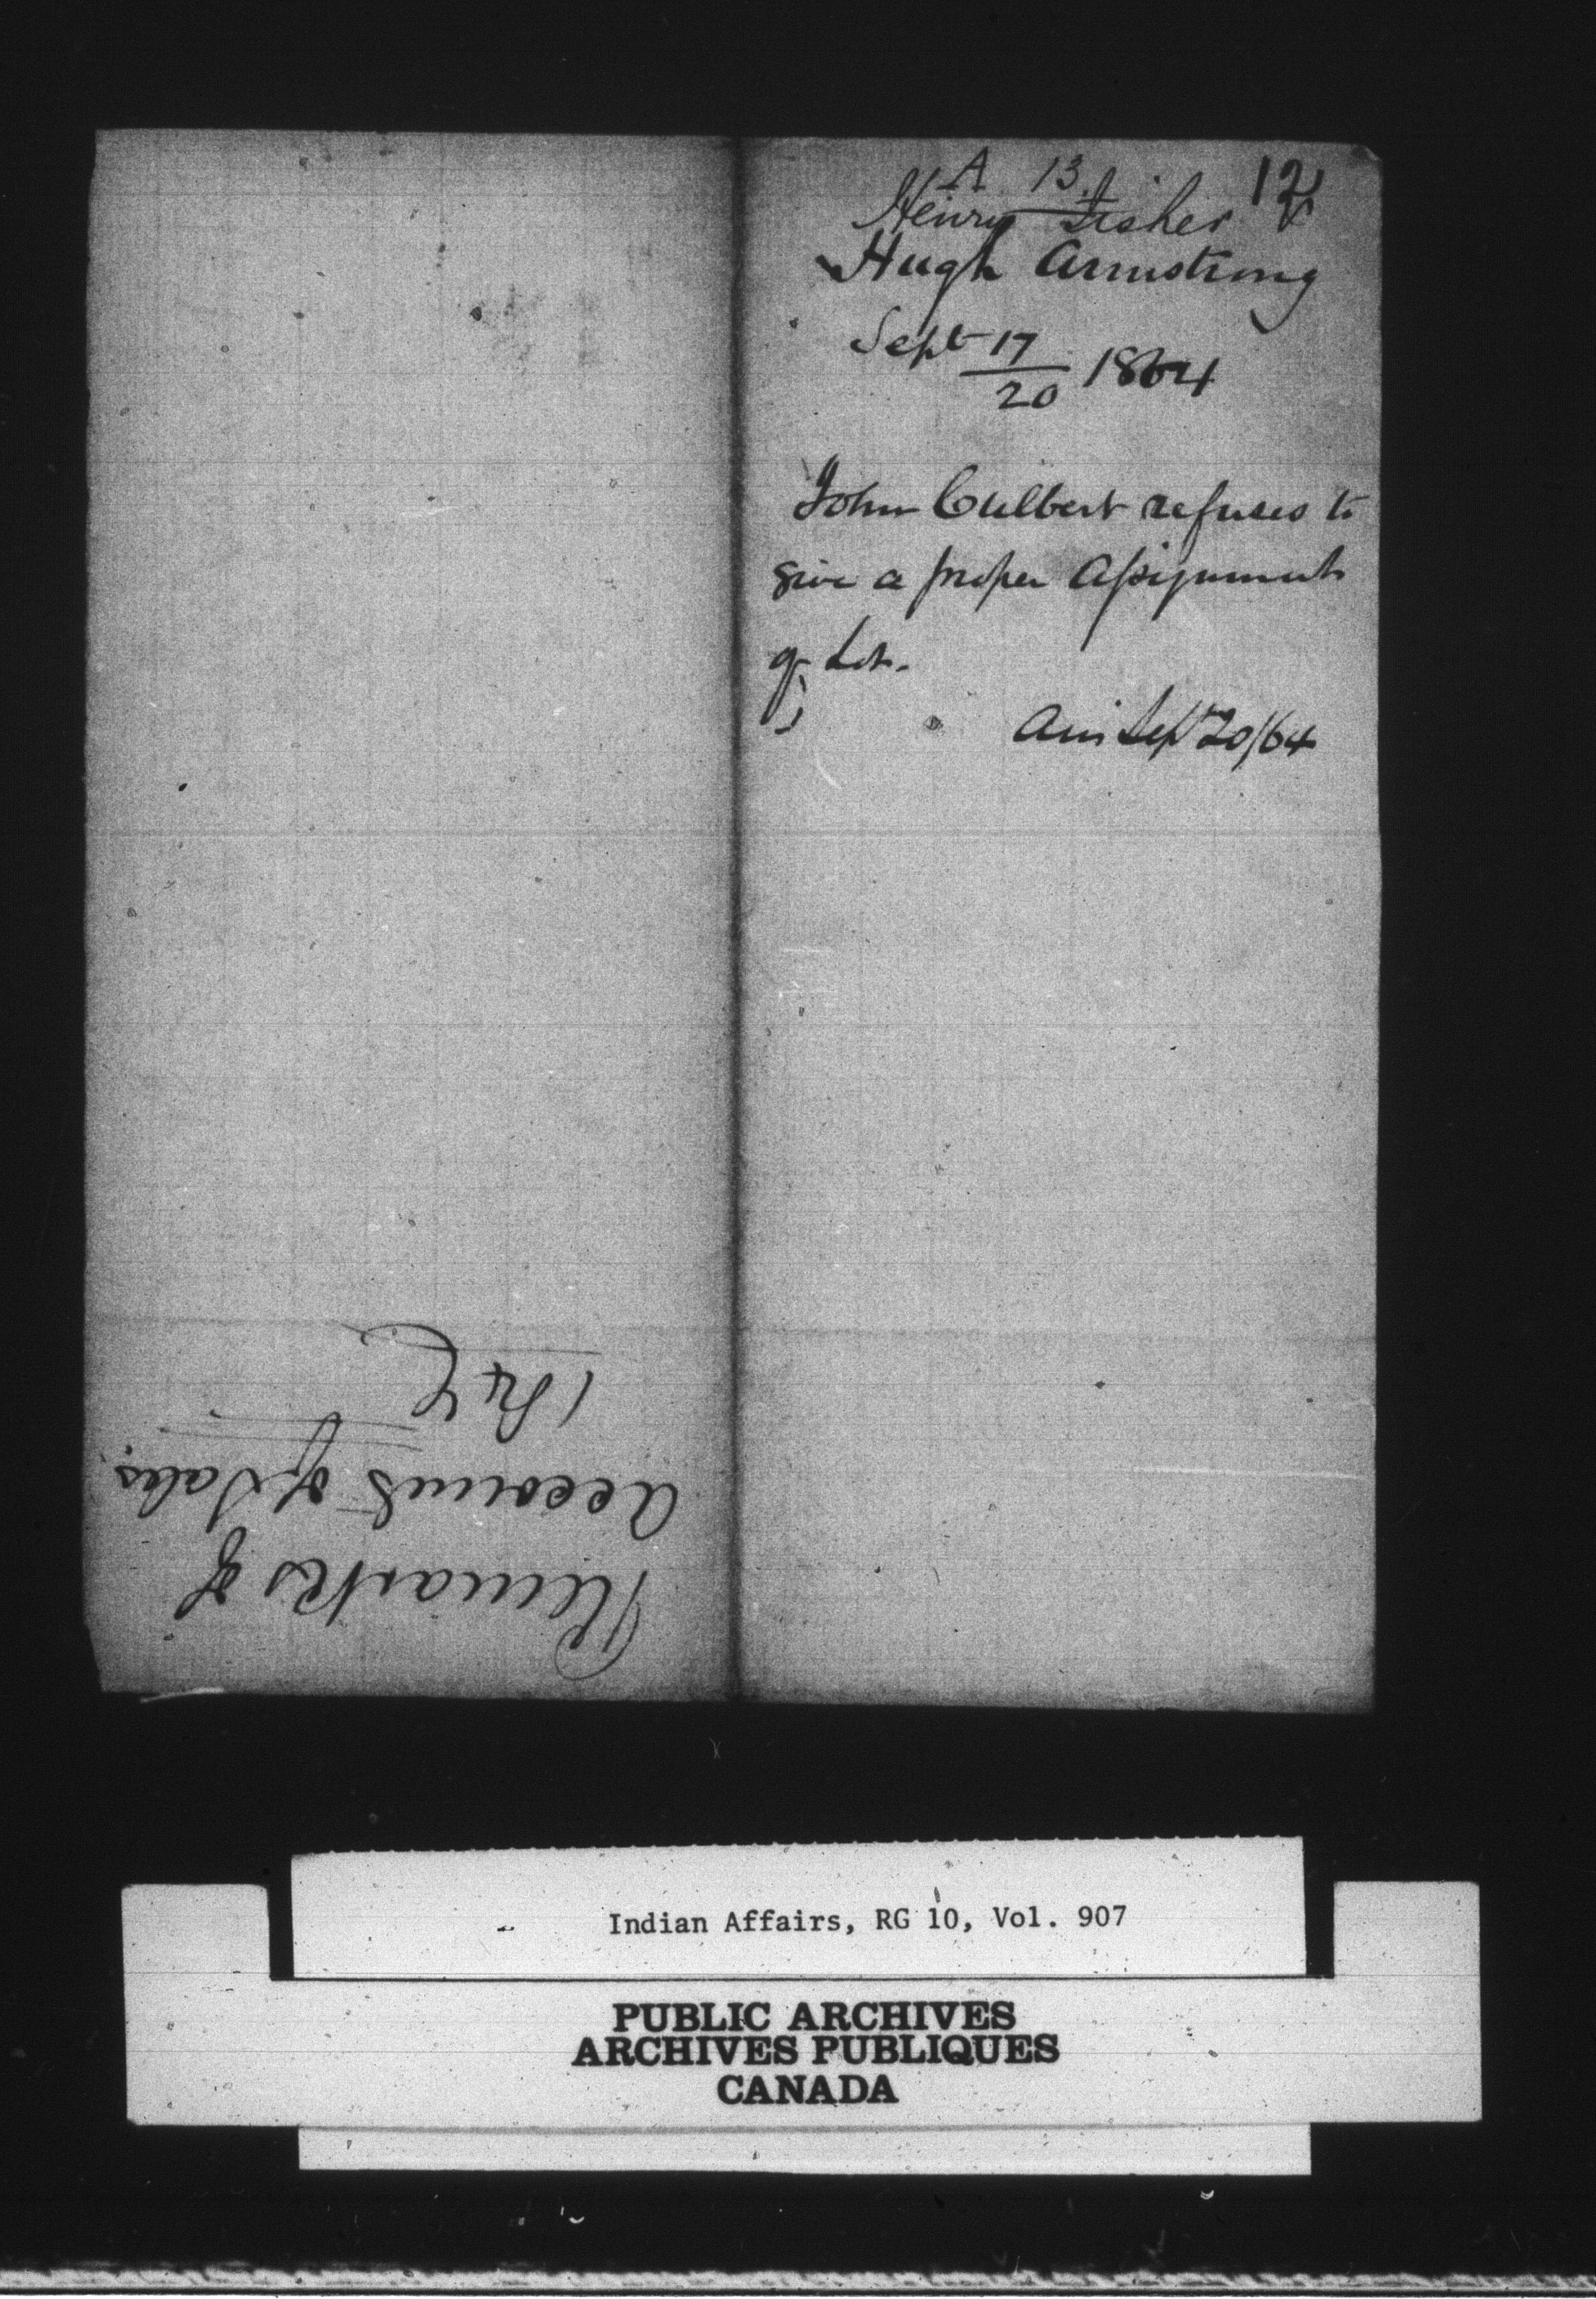 A 13. 12
Henry Fisher
Hugh Armstrong
Sept 17/20 1864
John Culbert refuses to
give a proper Assignment
of Lot.
Ans Sept 20/64
Remarks of
Accounts of Sales.
Indian Affairs, RG 10, Vol. 907
PUBLIC ARCHIVES
ARCHIVES PUBLIQUES
CANADA